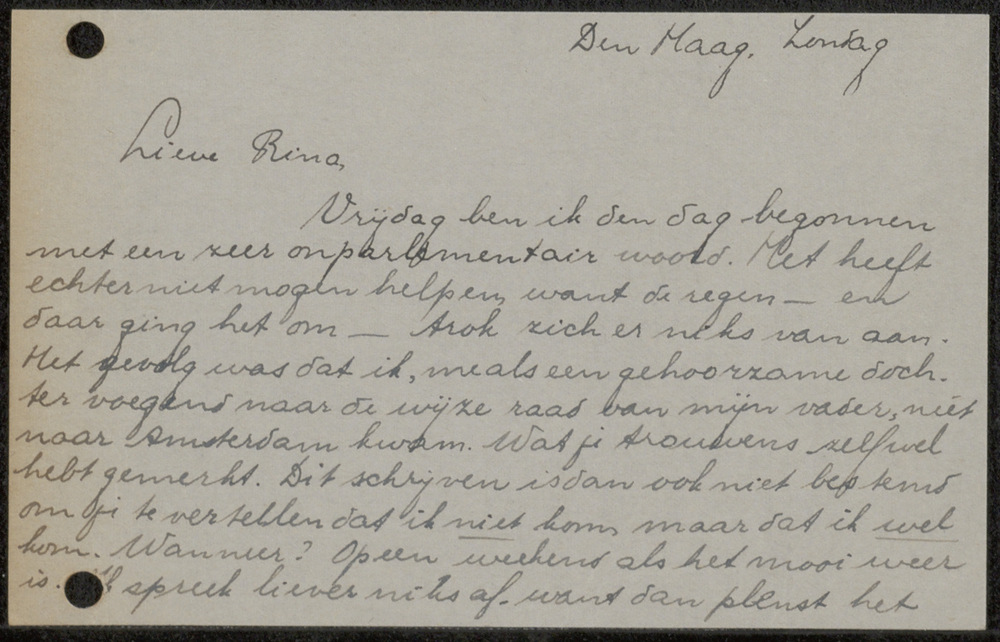 Den Haag, Zondag
Lieve Rina,
Vrijdag ben ik den dag begonnen
met een zeer onparlementair woord. Het heeft
echter niet mogen helpen, want de regen — en
daar ging het om — trok zich er niks van aan.
Het gevolg was dat ik, me als een gehoorzame doch-
ter voegend naar de wijze raad van mijn vader, niet
naar Amsterdam kwam. Wat je trouwens zelf wel
hebt gemerkt. Dit schrijven is dan ook niet bestemd
om je te vertellen dat ik niet kom, maar dat ik wel
kom. Wanneer? Op een weekend als het mooi weer
is. Ik spreek liever niks af, want dan plenst het